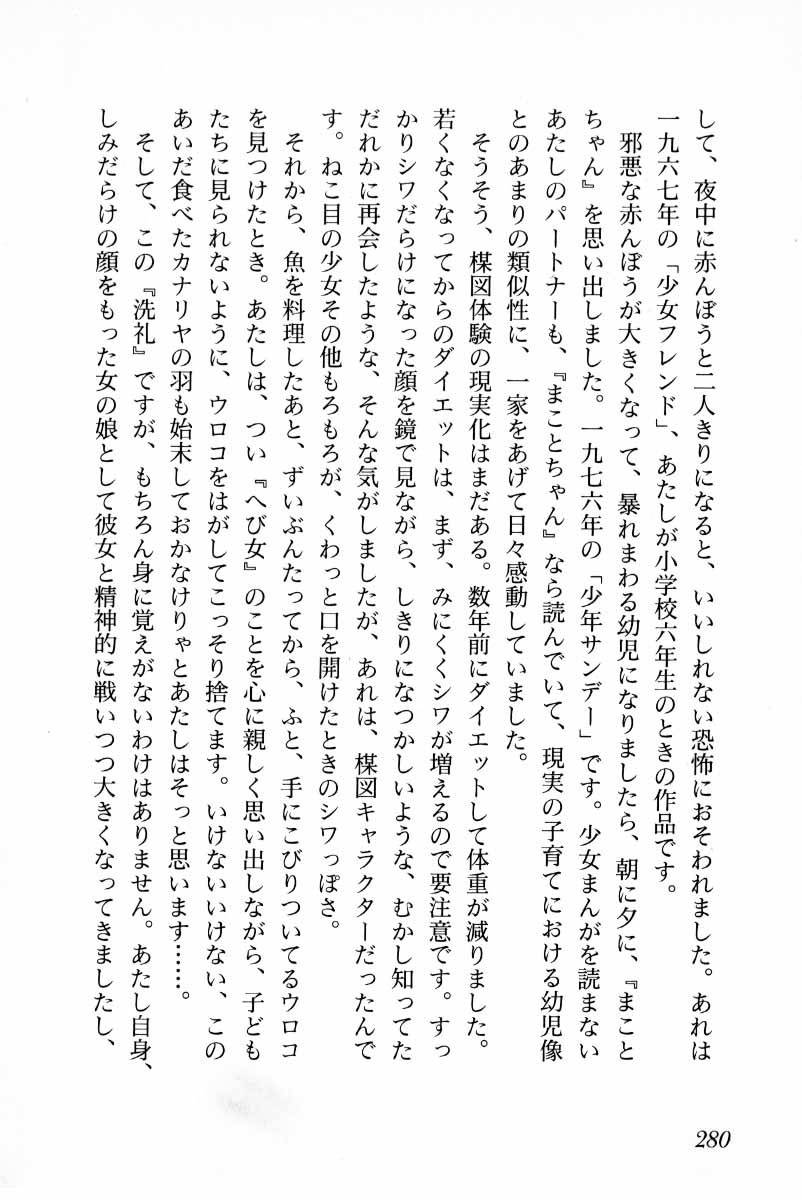 して、夜中に赤んぼうと二人きりになると、いいしれない恐怖におそわれました。あれは
一九六七年の「少女フレンド」、あたしが小学校六年生のときの作品です。
　邪悪な赤んぼうが大きくなって、暴れまわる幼児になりましたら、朝に夕に、『まこと
ちゃん』を思い出しました。一九七六年の「少年サンデー」です。少女まんがを読まない
あたしのパートナーも、『まことちゃん』なら読んでいて、現実の子育てにおける幼児像
とのあまりの類似性に、一家をあげて日々感動していました。
　そうそう、楳図体験の現実化はまだある。数年前にダイエットして体重が減りました。
若くなくなってからのダイエットは、まず、みにくくシワが増えるので要注意です。すっ
かりシワだらけになった顔を鏡で見ながら、しきりになつかしいような、むかし知ってた
だれかに再会したような、そんな気がしましたが、あれは、楳図キャラクターだったんで
す。ねこ目の少女その他もろもろが、くわっと口を開けたときのシワっぽさ。
　それから、魚を料理したあと、ずいぶんたってから、ふと、手にこびりついてるウロコ
を見つけたとき。あたしは、つい『へび女』のことを心に親しく思い出しながら、子ども
たちに見られないように、ウロコをはがしてこっそり捨てます。いけないいけない、この
あいだ食べたカナリヤの羽も始末しておかなけりゃとあたしはそっと思います……。
　そして、この『洗礼』ですが、もちろん身に覚えがないわけはありません。あたし自身、
しみだらけの顔をもった女の娘として彼女と精神的に戦いつつ大きくなってきましたし、
280